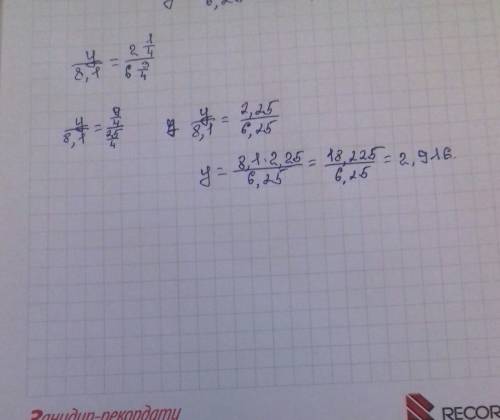 6,25
y/8,1 = 2 1/4 / 6 9/4
y/8,1 = 9/4 / 25/4   y/8,1 = 2,25/6,25
y = 8,1·2,25/6,25 = 18,225/6,25 = 2,916.
Занидип-рекордати
RECOR